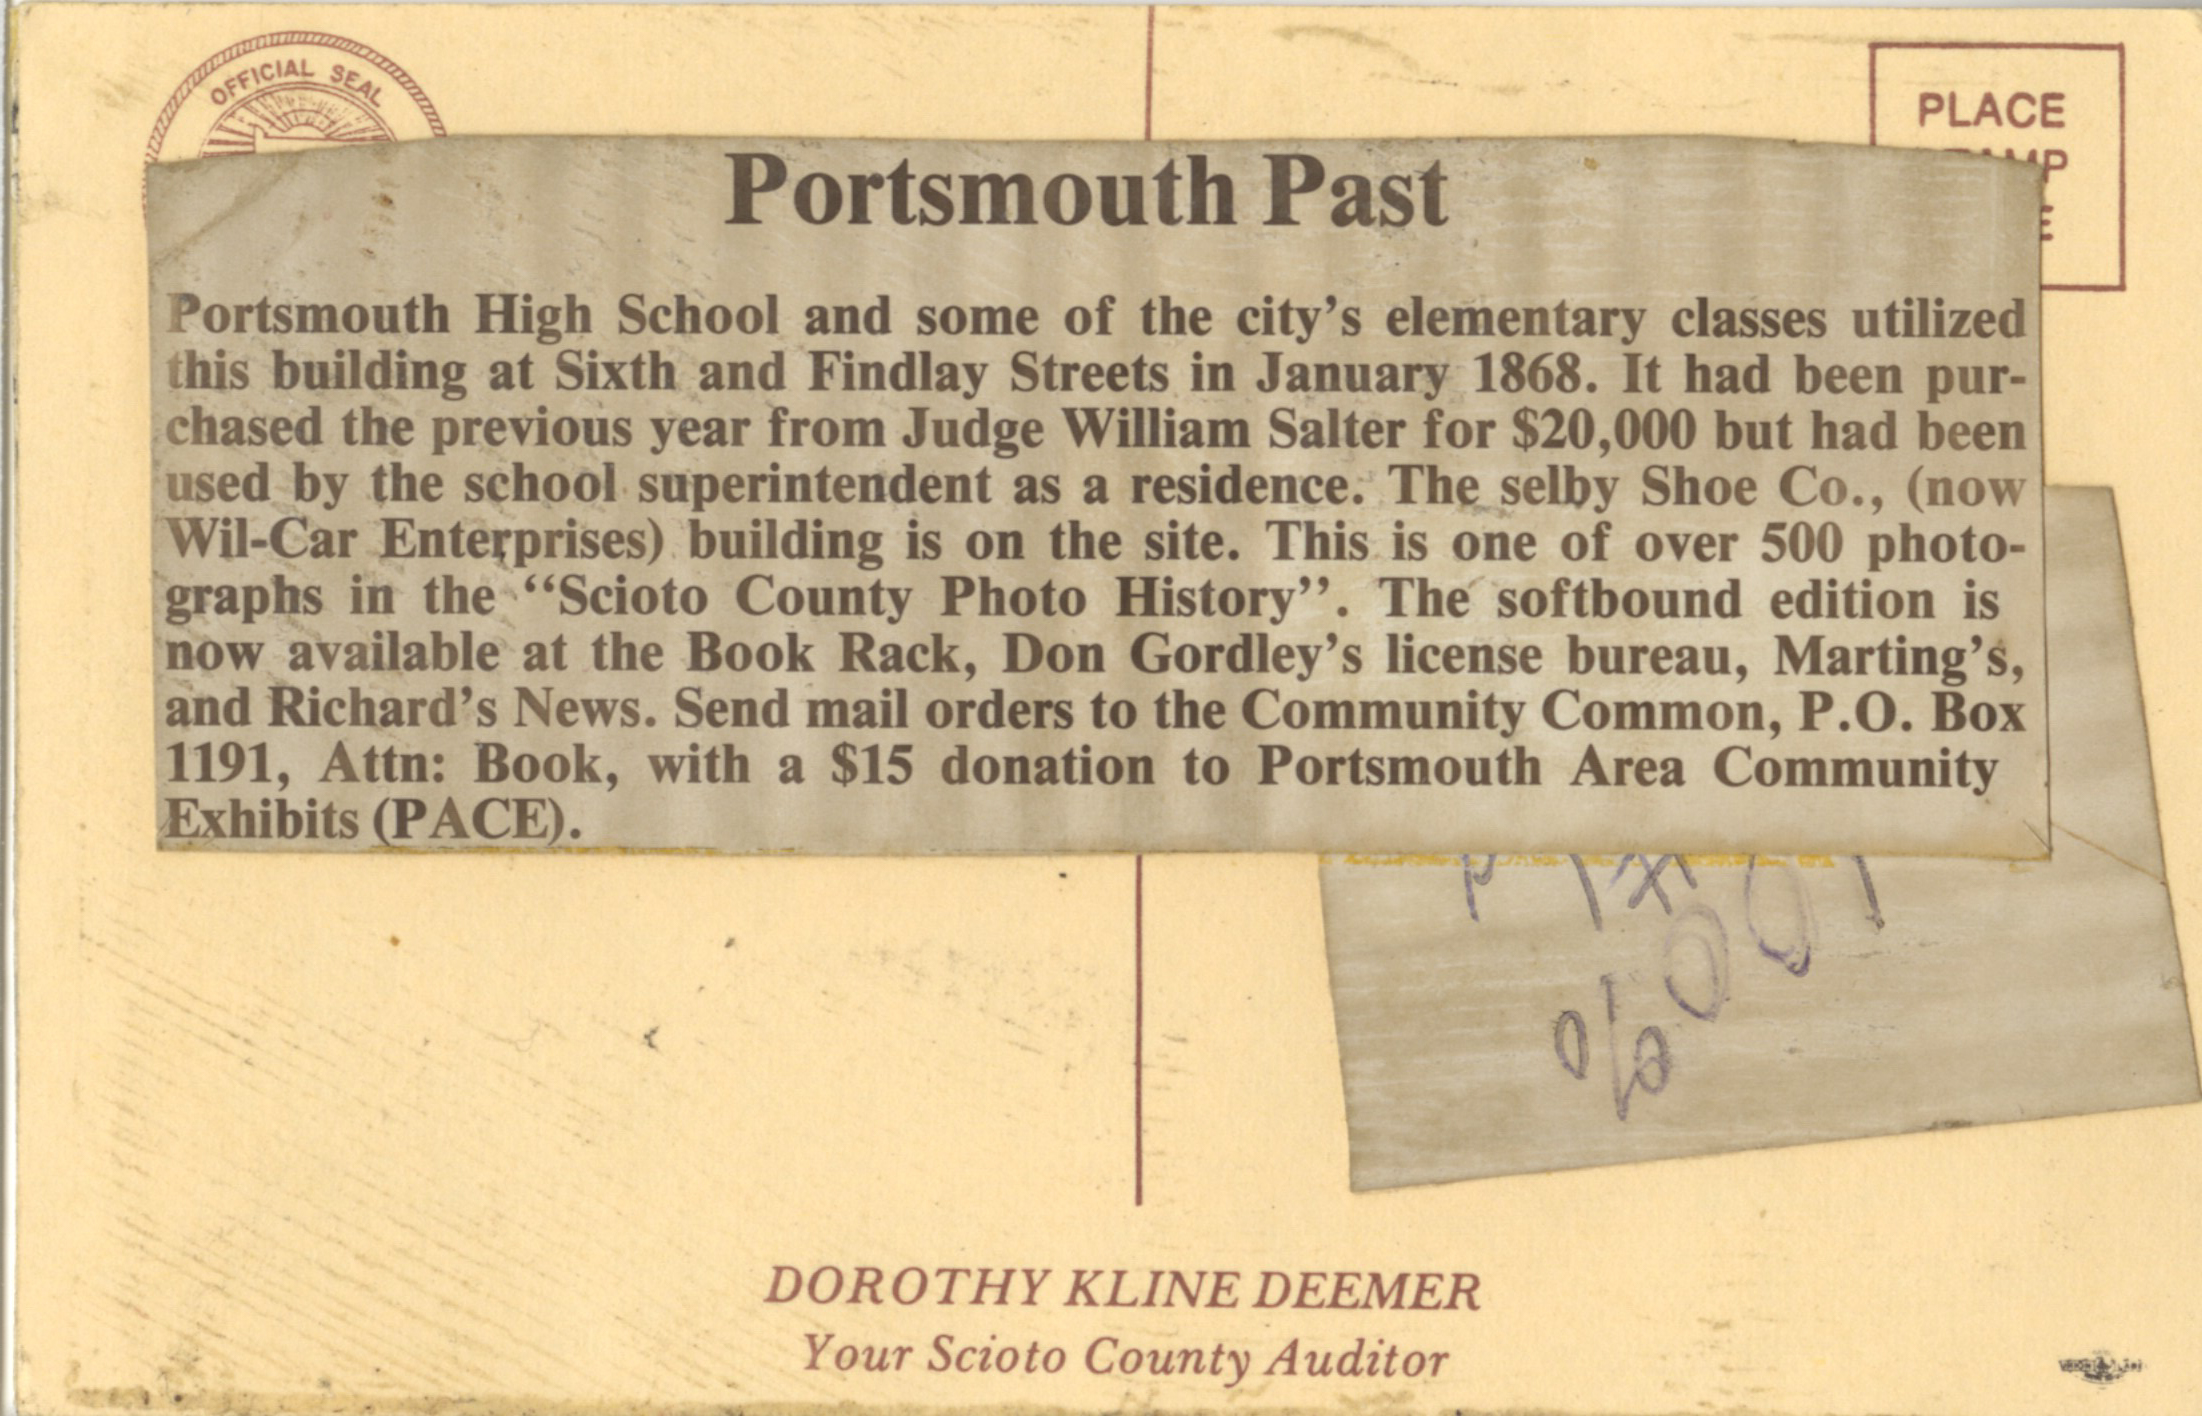 OFFICIAL SEAL
PLACE
Portsmouth Past
Portsmouth High School and some of the city's elementary classes utilized
this building at Sixth and Findlay Streets in January 1868. It had been pur-
chased the previous year from Judge William Salter for $20,000 but had been
used by the school superintendent as a residence. The selby Shoe Co., (now
Wil-Car Enterprises) building is on the site. This is one of over 500 photo-
graphs in the “Scioto County Photo History”. The softbound edition is
now available at the Book Rack, Don Gordley's license bureau, Marting's,
and Richard's News. Send mail orders to the Community Common, P.O. Box
1191, Attn: Book, with a $15 donation to Portsmouth Area Community
Exhibits (PACE).
DOROTHY KLINE DEEMER
Your Scioto County Auditor